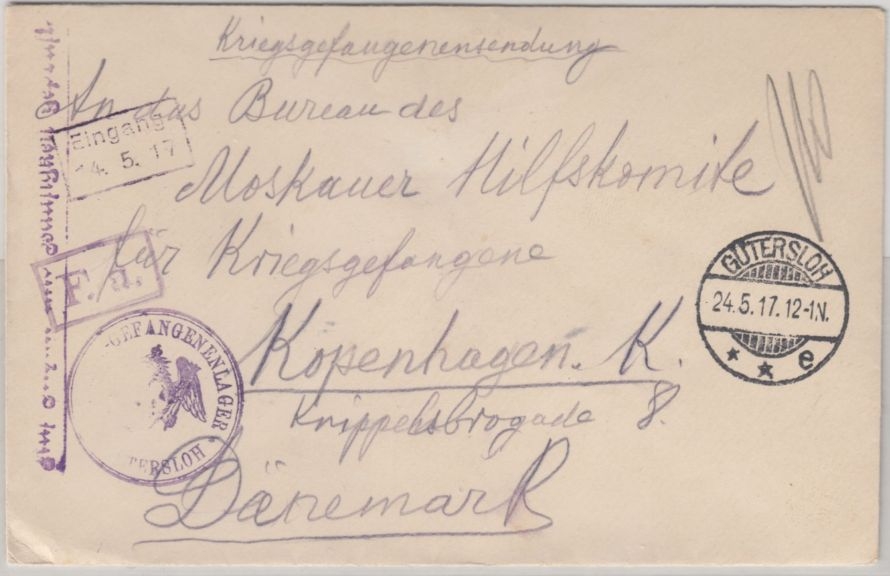 Kriegsgefangenensendung
An das Bureau des
Eingang
14. 5. 17
Moskauer Hilfskomite
für Kriegsgefangene
F. a.
GÜTERSLOH
24.5.17.12-1N.
* * e
GEFANGENENLAGER
TERSLOH
Kopenhagen. K.
Knippelsbrogade 8.
Dänemark